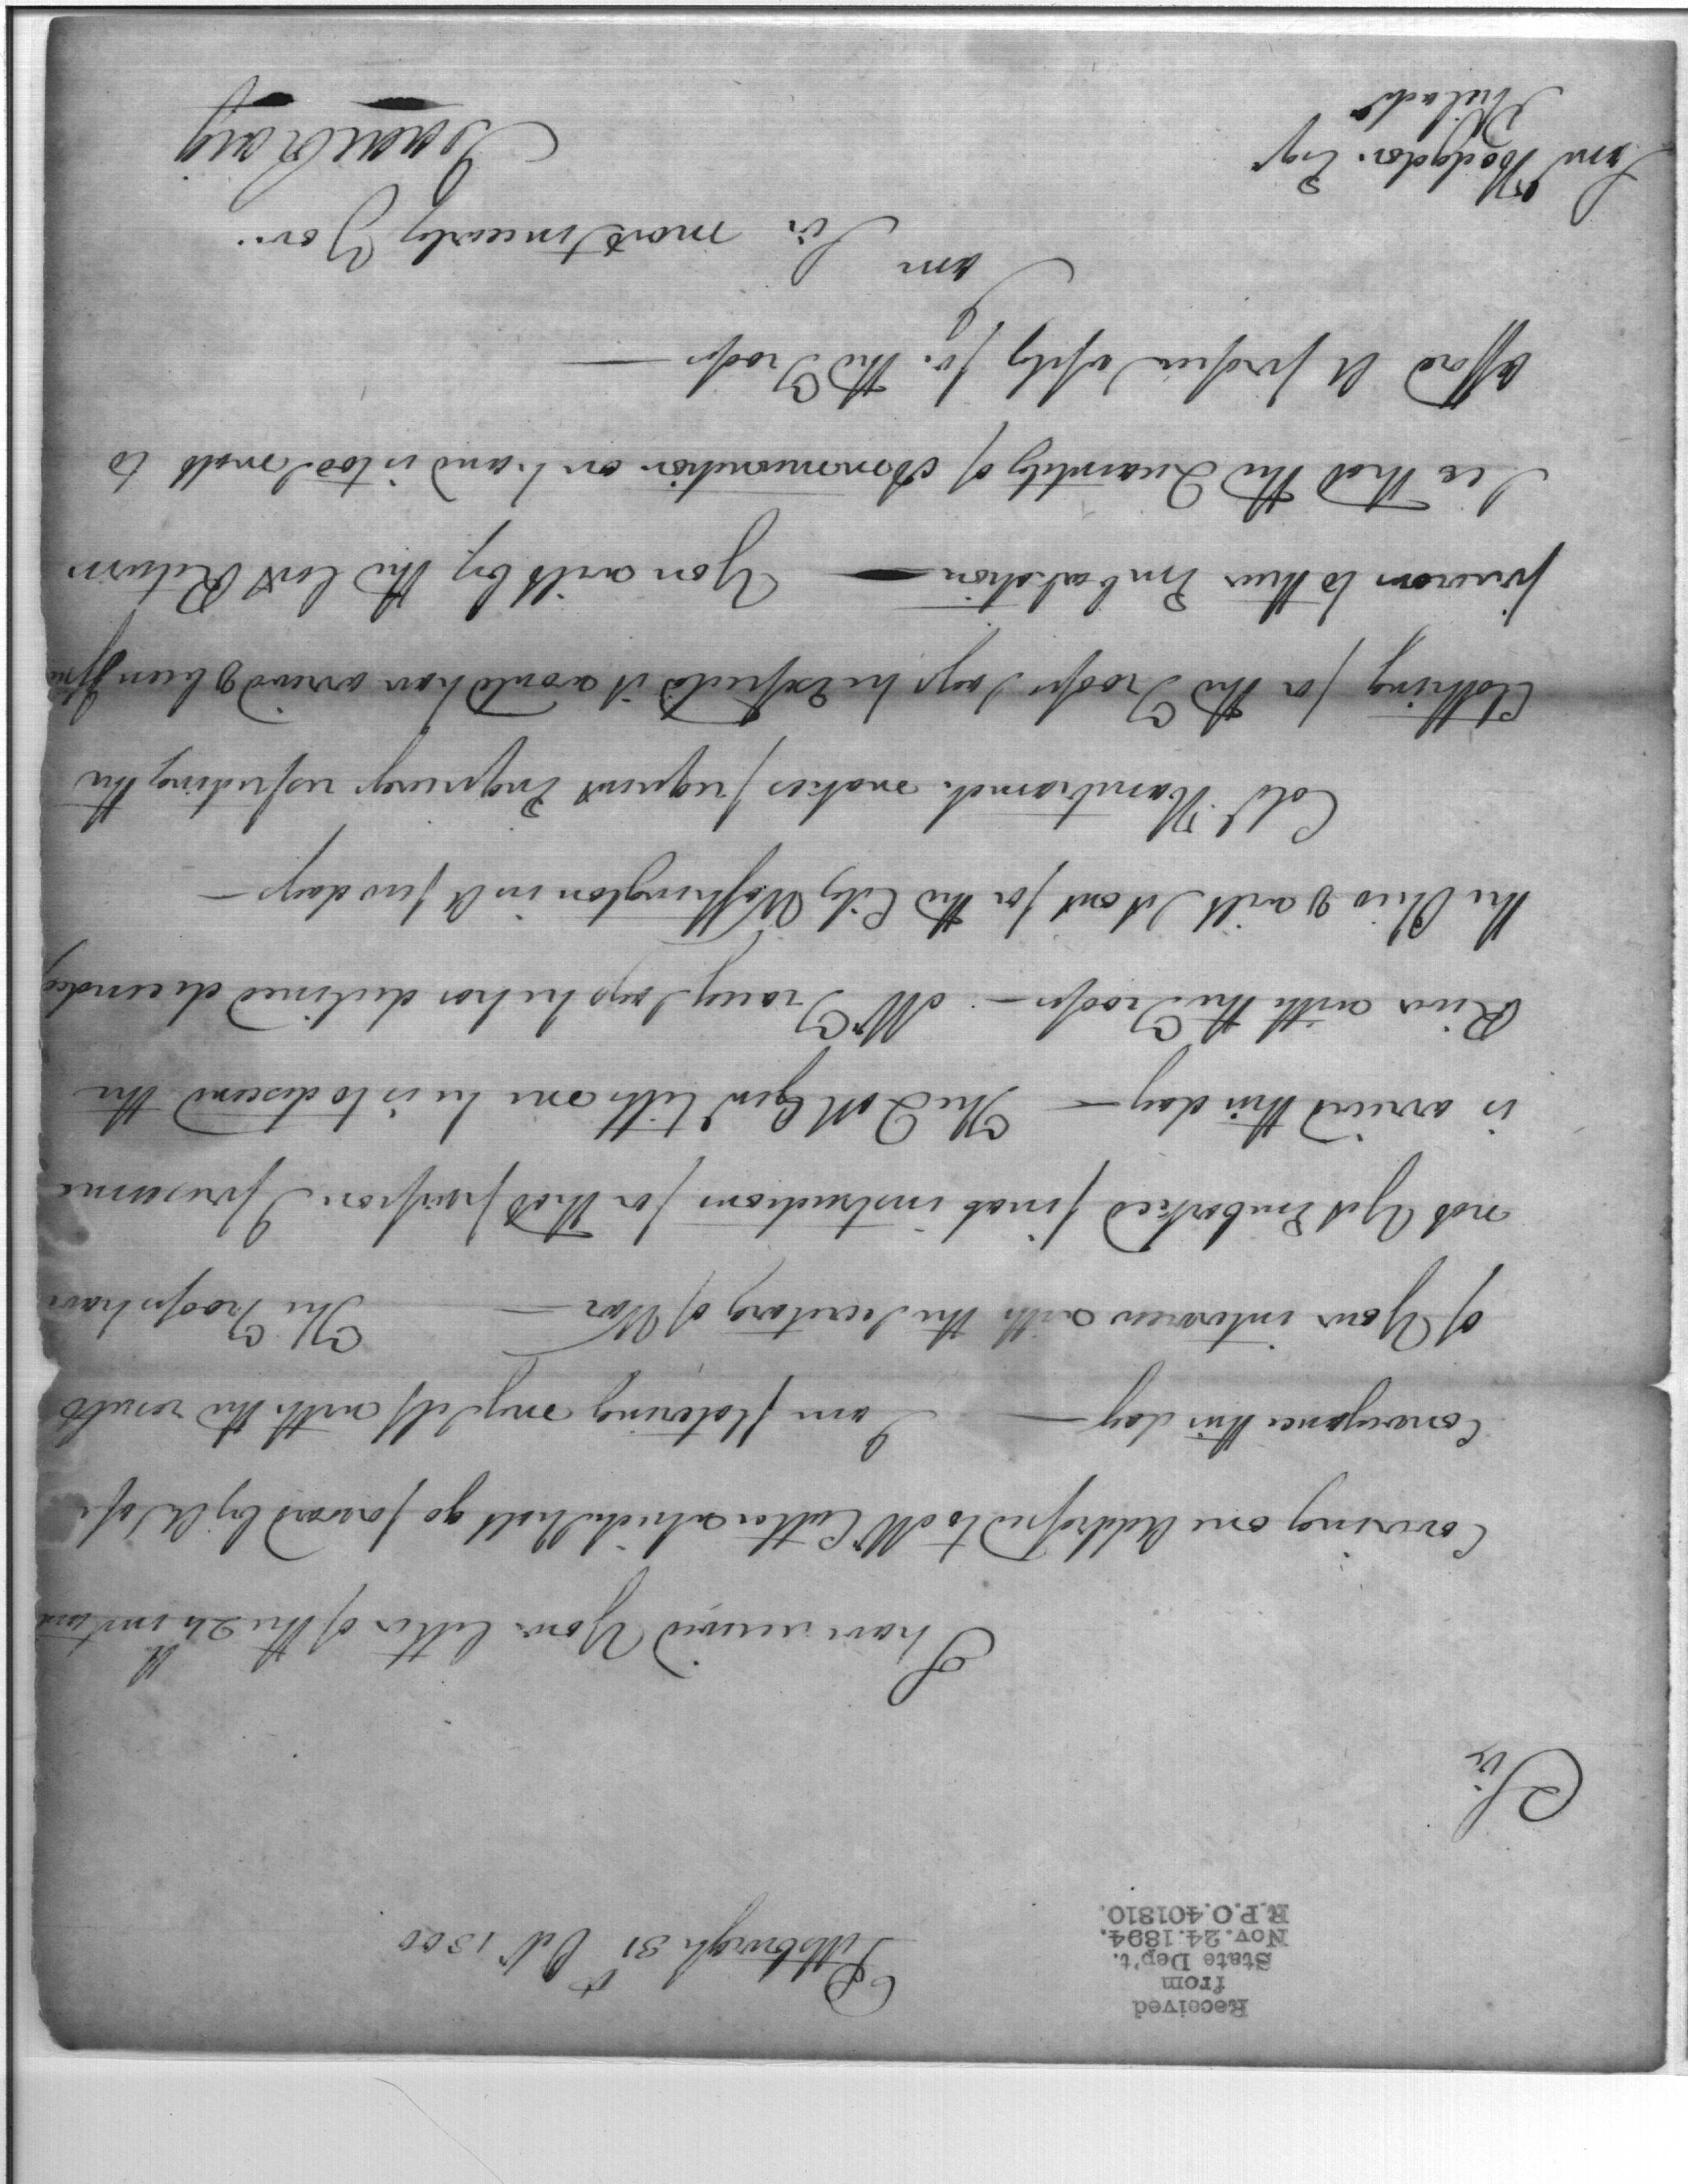 Received
from
State Dep't.
Nov. 24. 1894.
R.P.O. 401810.
Pittsburgh 31st Octr 1800
Sir
I have received Your letter of the 24th inst and
Covering one Addressed to Mr which shall go forward by a safe
Conveyance this day — I am flatering my Self with the result
of Your interview with the Secretary of War — The Troops have
not Yet Embarked final instructions for that purpose I presume
is arrived this day — The Q M Genl tells me he is to descend the
River with the Troops — Mr Tracy Says he has declined decending
the Ohio & will Set out for the City Washington in a few days —
Colo Hamtramck makes frequent Enquiries respecting the
Clothing for the Troops Says he Expected it would have arrived & been
previous to their Embarkation — You will by the last Return
See that the Quantity of Ammunition on hand is too Small to
afford a proper Suply for the Troops —
I am
Sir most Sincerely Your
Isaac Craig
Saml Hodgdon Esqr
Philada